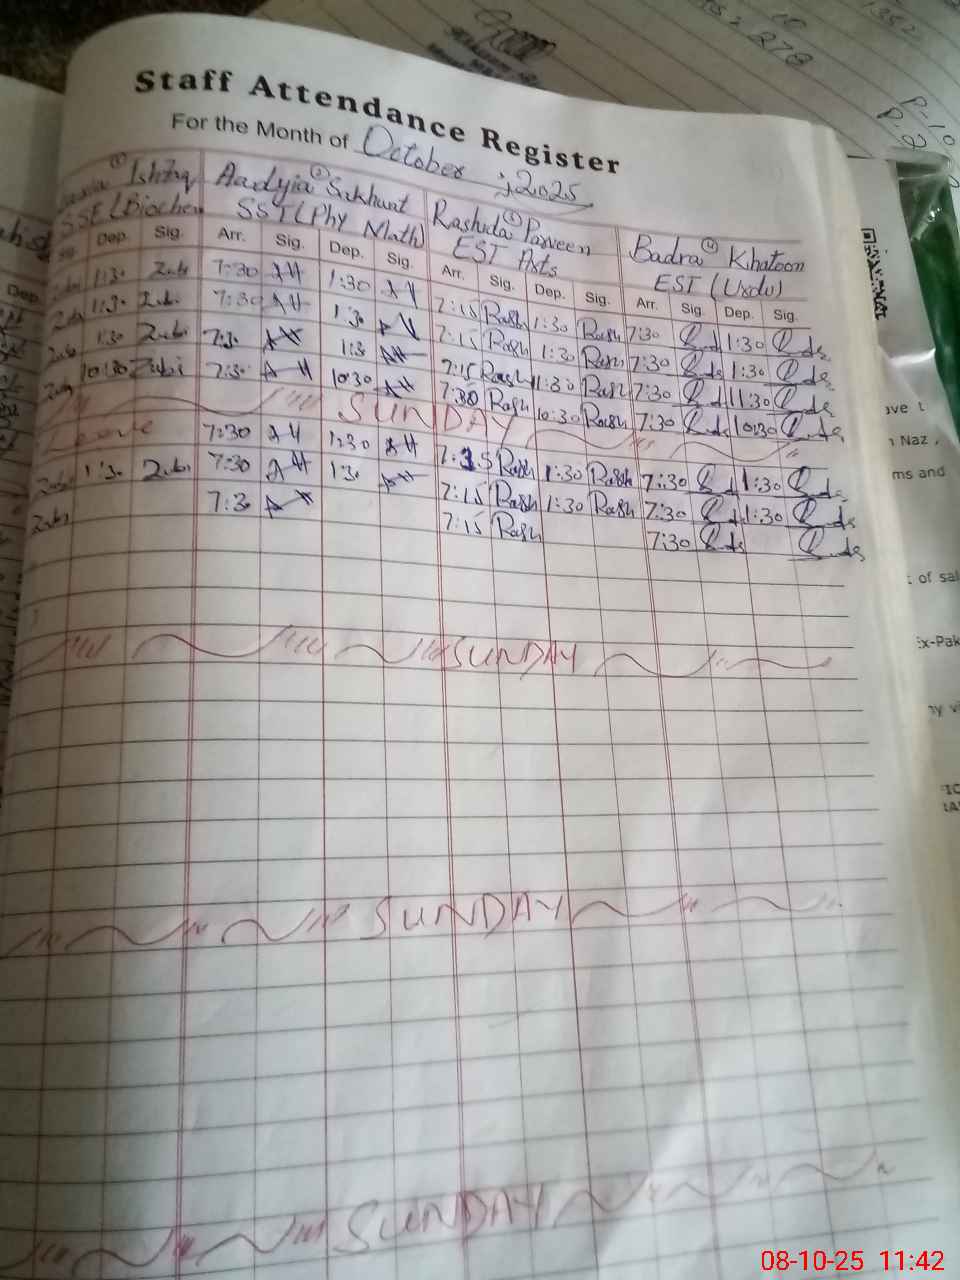 Staff Attendance Register
For the Month of October ; 2025
① Ishfaq Aadyia ② Sakhwat Rashida ③ Parveen Badra ④ Khatoon
SSE (Biochem SST (Phy Math) EST Arts EST (Urdu)
Sig. Dep. Sig. Arr. Sig. Dep. Sig. Arr. Sig. Dep. Sig. Arr. Sig. Dep. Sig.
1:30 Zubi 7:30 AH 1:30 AH 7:15 Rash 1:30 Rash 7:30 1:30
1:30 Zubi 7:30 AH 1:30 AH 7:15 Rash 1:30 Rash 7:30 1:30
Zubi 1:30 Zubi 7:30 AH 1:30 AH 7:15 Rash 1:30 Rash 7:30 1:30
Zubi 10:30 Zubi 7:30 AH 10:30 AH 7:30 Rash 10:30 Rash 7:30 10:30
SUNDAY
Leave 7:30 AH 1:30 AH 7:15 Rash 1:30 Rash 7:30 1:30
Zubi 1:30 Zubi 7:30 AH 1:30 AH 7:15 Rash 1:30 Rash 7:30 1:30
Zubi 7:30 AH 7:15 Rash 7:30
SUNDAY
SUNDAY
SUNDAY
Dep.
278
1352
P-10
P-2
ave t
Naz ,
ms and
t of sal
Ex-Pak
ny vi
08-10-25 11:42